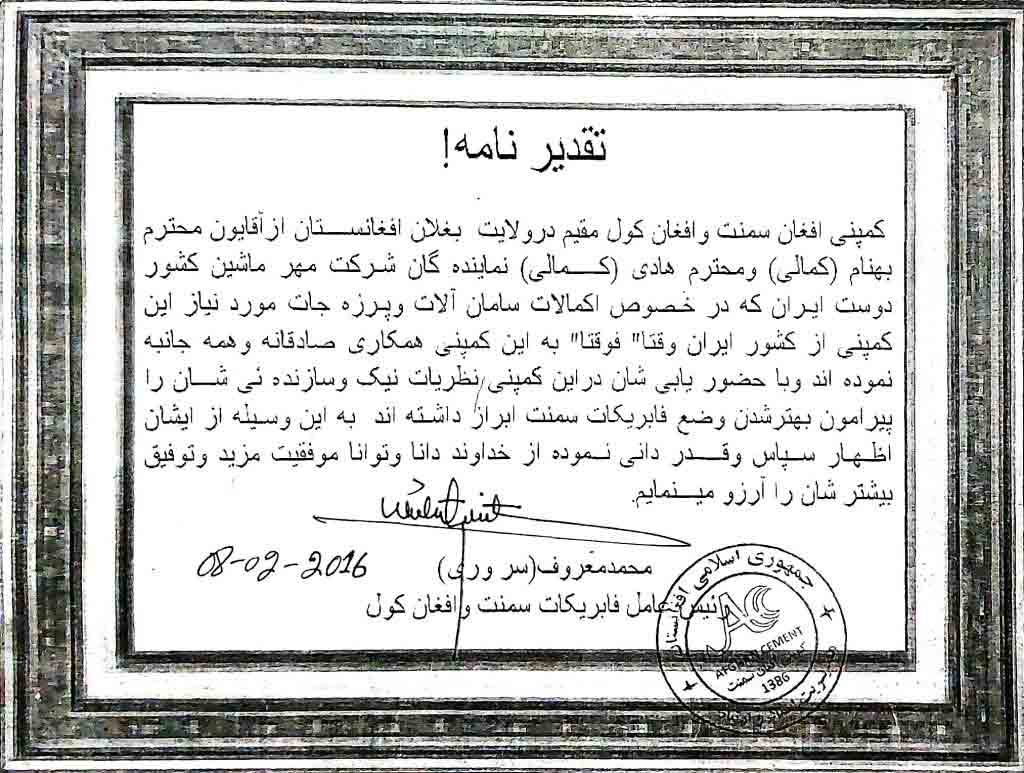 تقدیر نامه!
کمپنی افغان سمنت وافغان کول مقیم درولایت بغلان افغانستان ازآقایون محترم
بهنام (کمالی) ومحترم هادی (کمالی) نماینده گان شرکت مهر ماشین کشور
دوست ایران که در خصوص اکمالات سامان آلات وپرزه جات مورد نیاز این
کمپنی از کشور ایران وقتا" فوقتا" به این کمپنی همکاری صادقانه وهمه جانبه
نموده اند وبا حضور یابی شان دراین کمپنی نظریات نیک وسازنده ئی شان را
پیرامون بهترشدن وضع فابریکات سمنت ابراز داشته اند به این وسیله از ایشان
اظهار سپاس وقدر دانی نموده از خداوند دانا وتوانا موفقیت مزید وتوفیق
بیشتر شان را آرزو مینمایم.
محمدمعروف(سروری)
08-02-2016
رئیس عامل فابریکات سمنت وافغان کول
جمهوری اسلامی افغانستان
AFGHAN CEMENT
افغان سمنت
1386